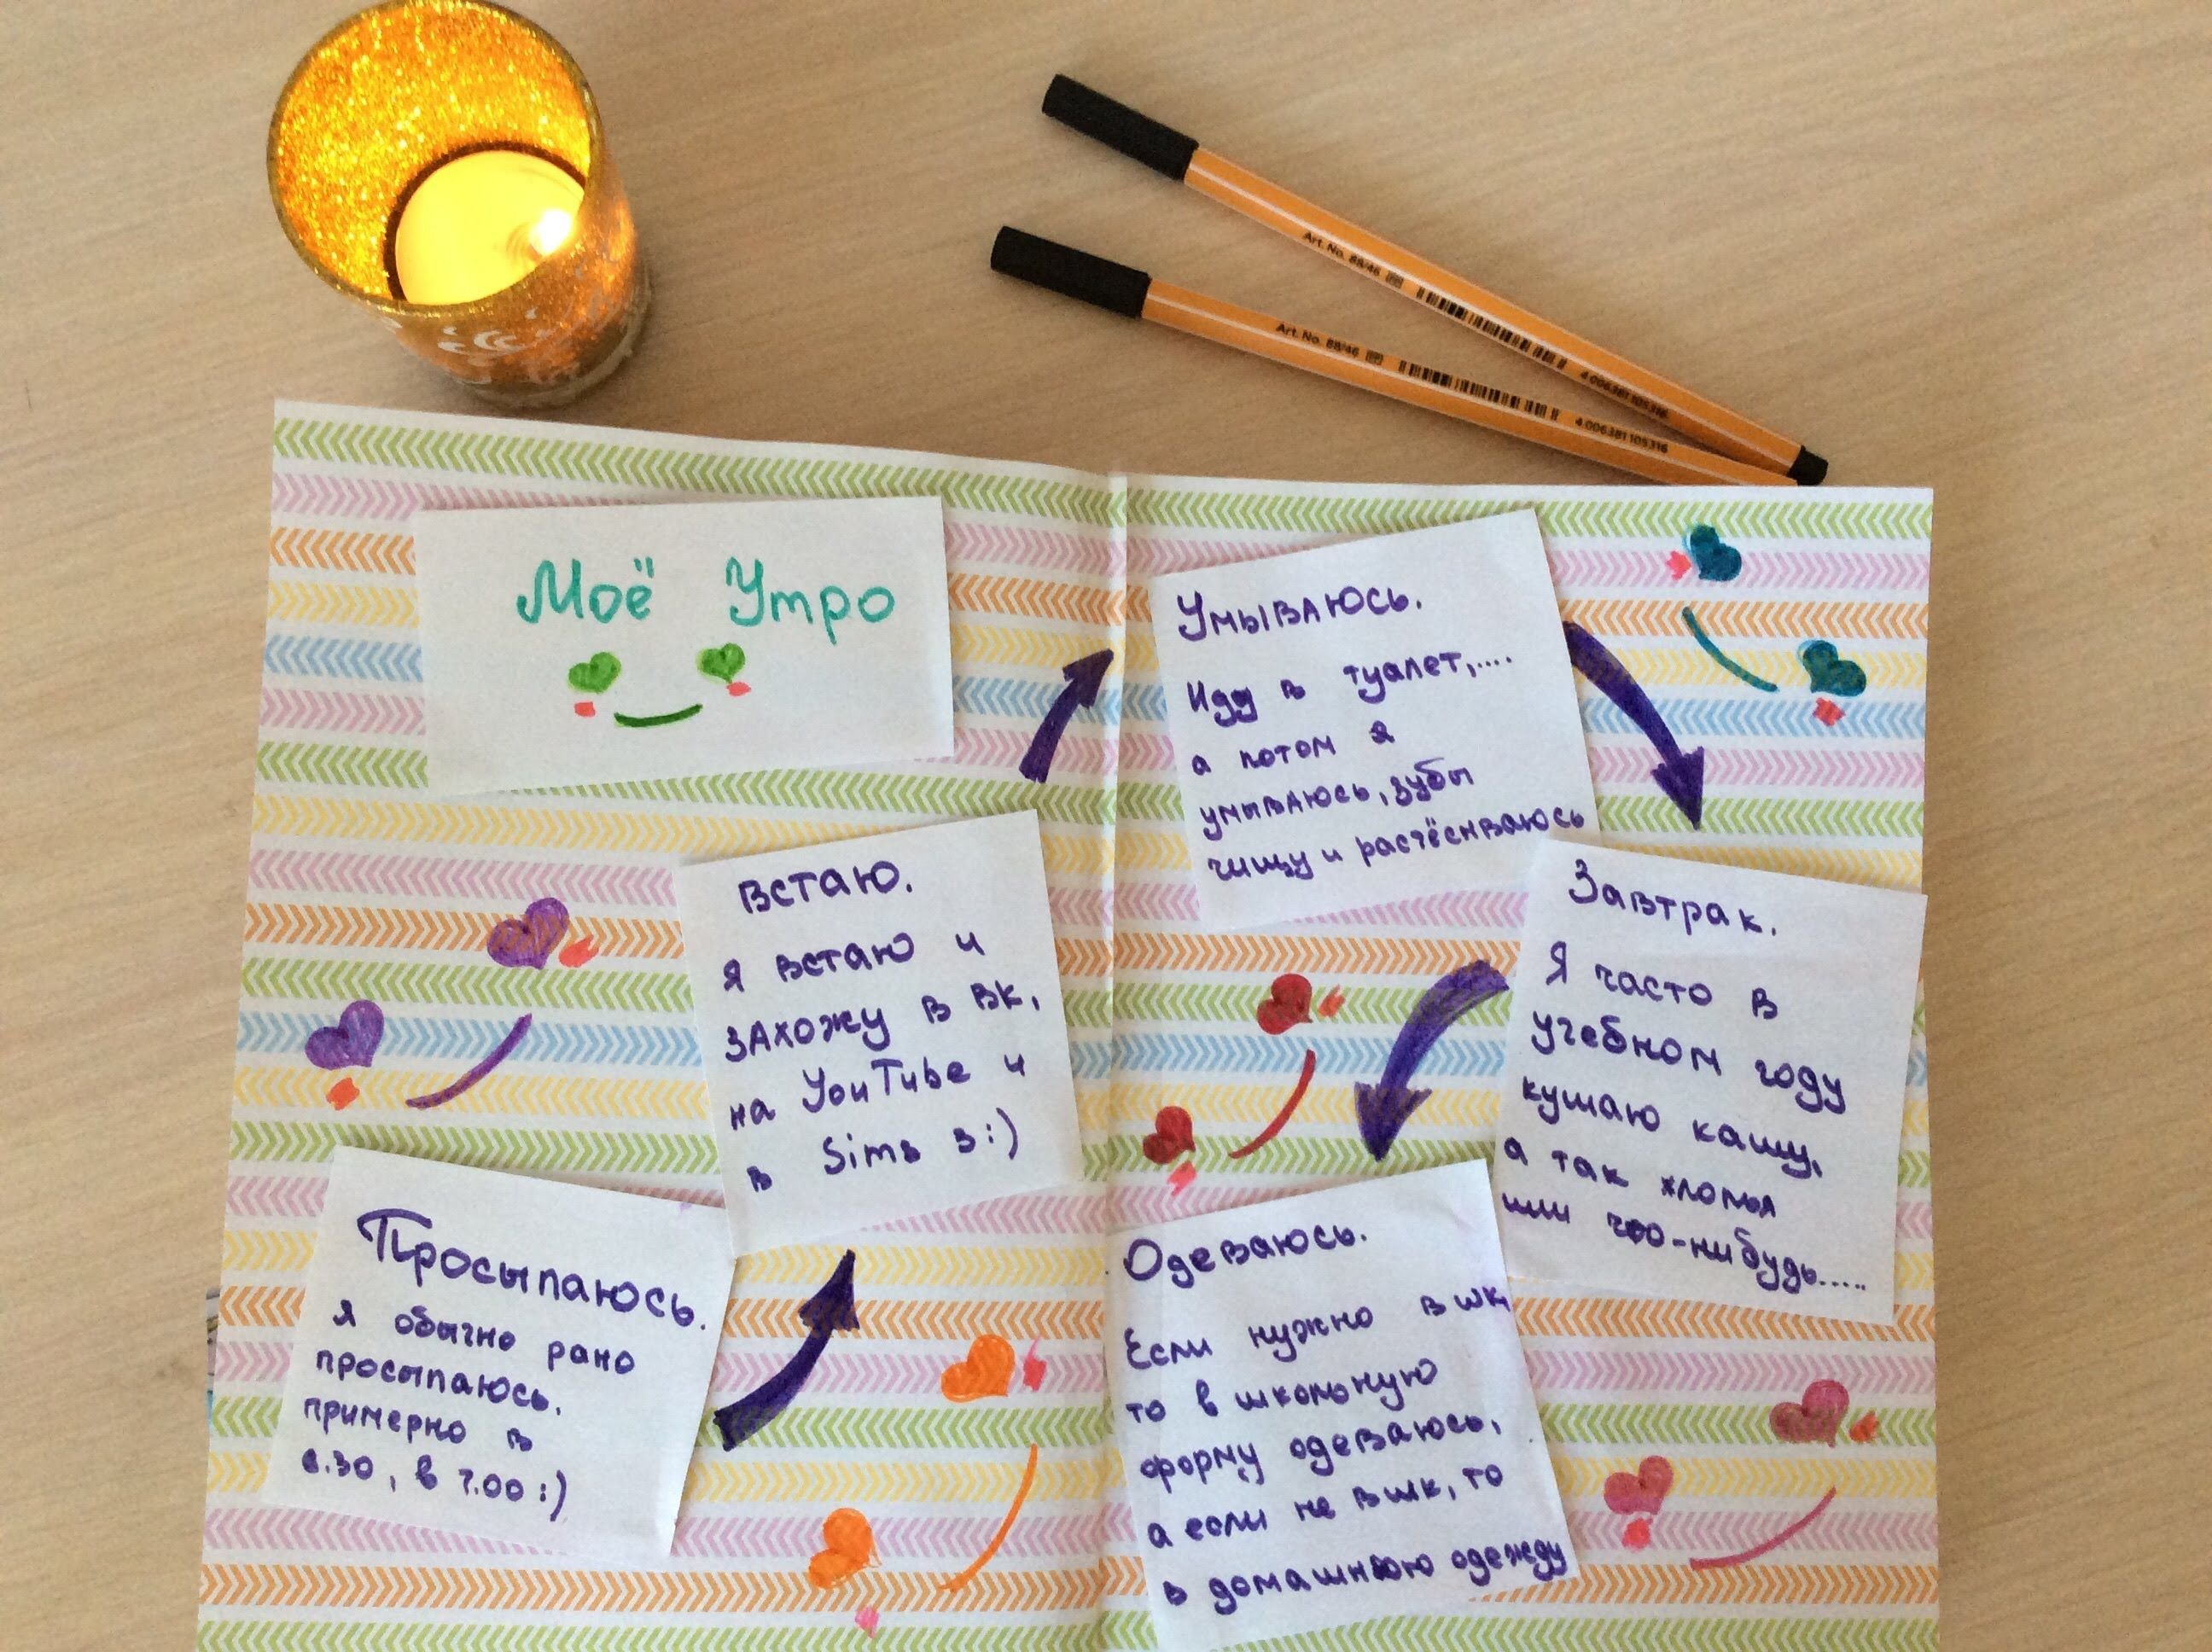 Art. No. 88/46
4 006381 105316
Art. No. 88/46
4 006381 105316
Моё Утро
Просыпаюсь.
Я обычно рано
просыпаюсь.
примерно в
6.30, в 7.00 :)
Встаю.
Я встаю и
захожу в ВК,
на YouTube и
в Sims 3 :)
Умываюсь.
Иду в туалет,....
а потом я
умываюсь, зубы
чищу и растёсываюсь
Завтрак.
Я часто в
учебном году
кушаю кашу,
а так хлопья
или что-нибудь.....
Одеваюсь.
Если нужно в шк,
то в школьную
форму одеваюсь,
а если не в шк, то
в домашнюю одежду